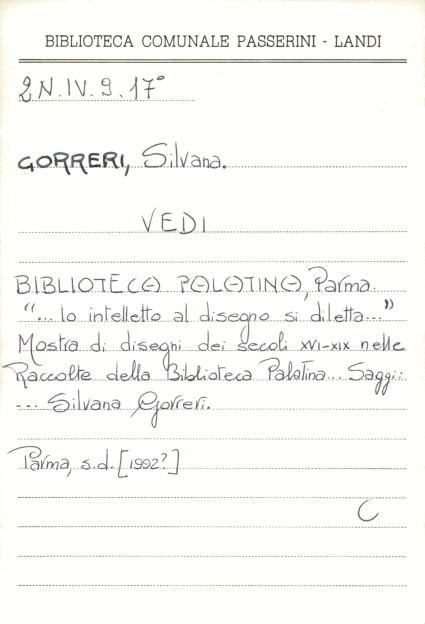 BIBLIOTECA COMUNALE PASSERINI - LANDI
2N.IV.9.17°
GORRERI, Silvana.
VEDI
BIBLIOTECA PALATINA, Parma.
"... lo intelletto al disegno si diletta..."
Mostra di disegni dei secoli XVI-XIX nelle
Raccolte della Biblioteca Palatina... Saggi:
... Silvana Gorreri.
Parma, s.d. [1992?]
C